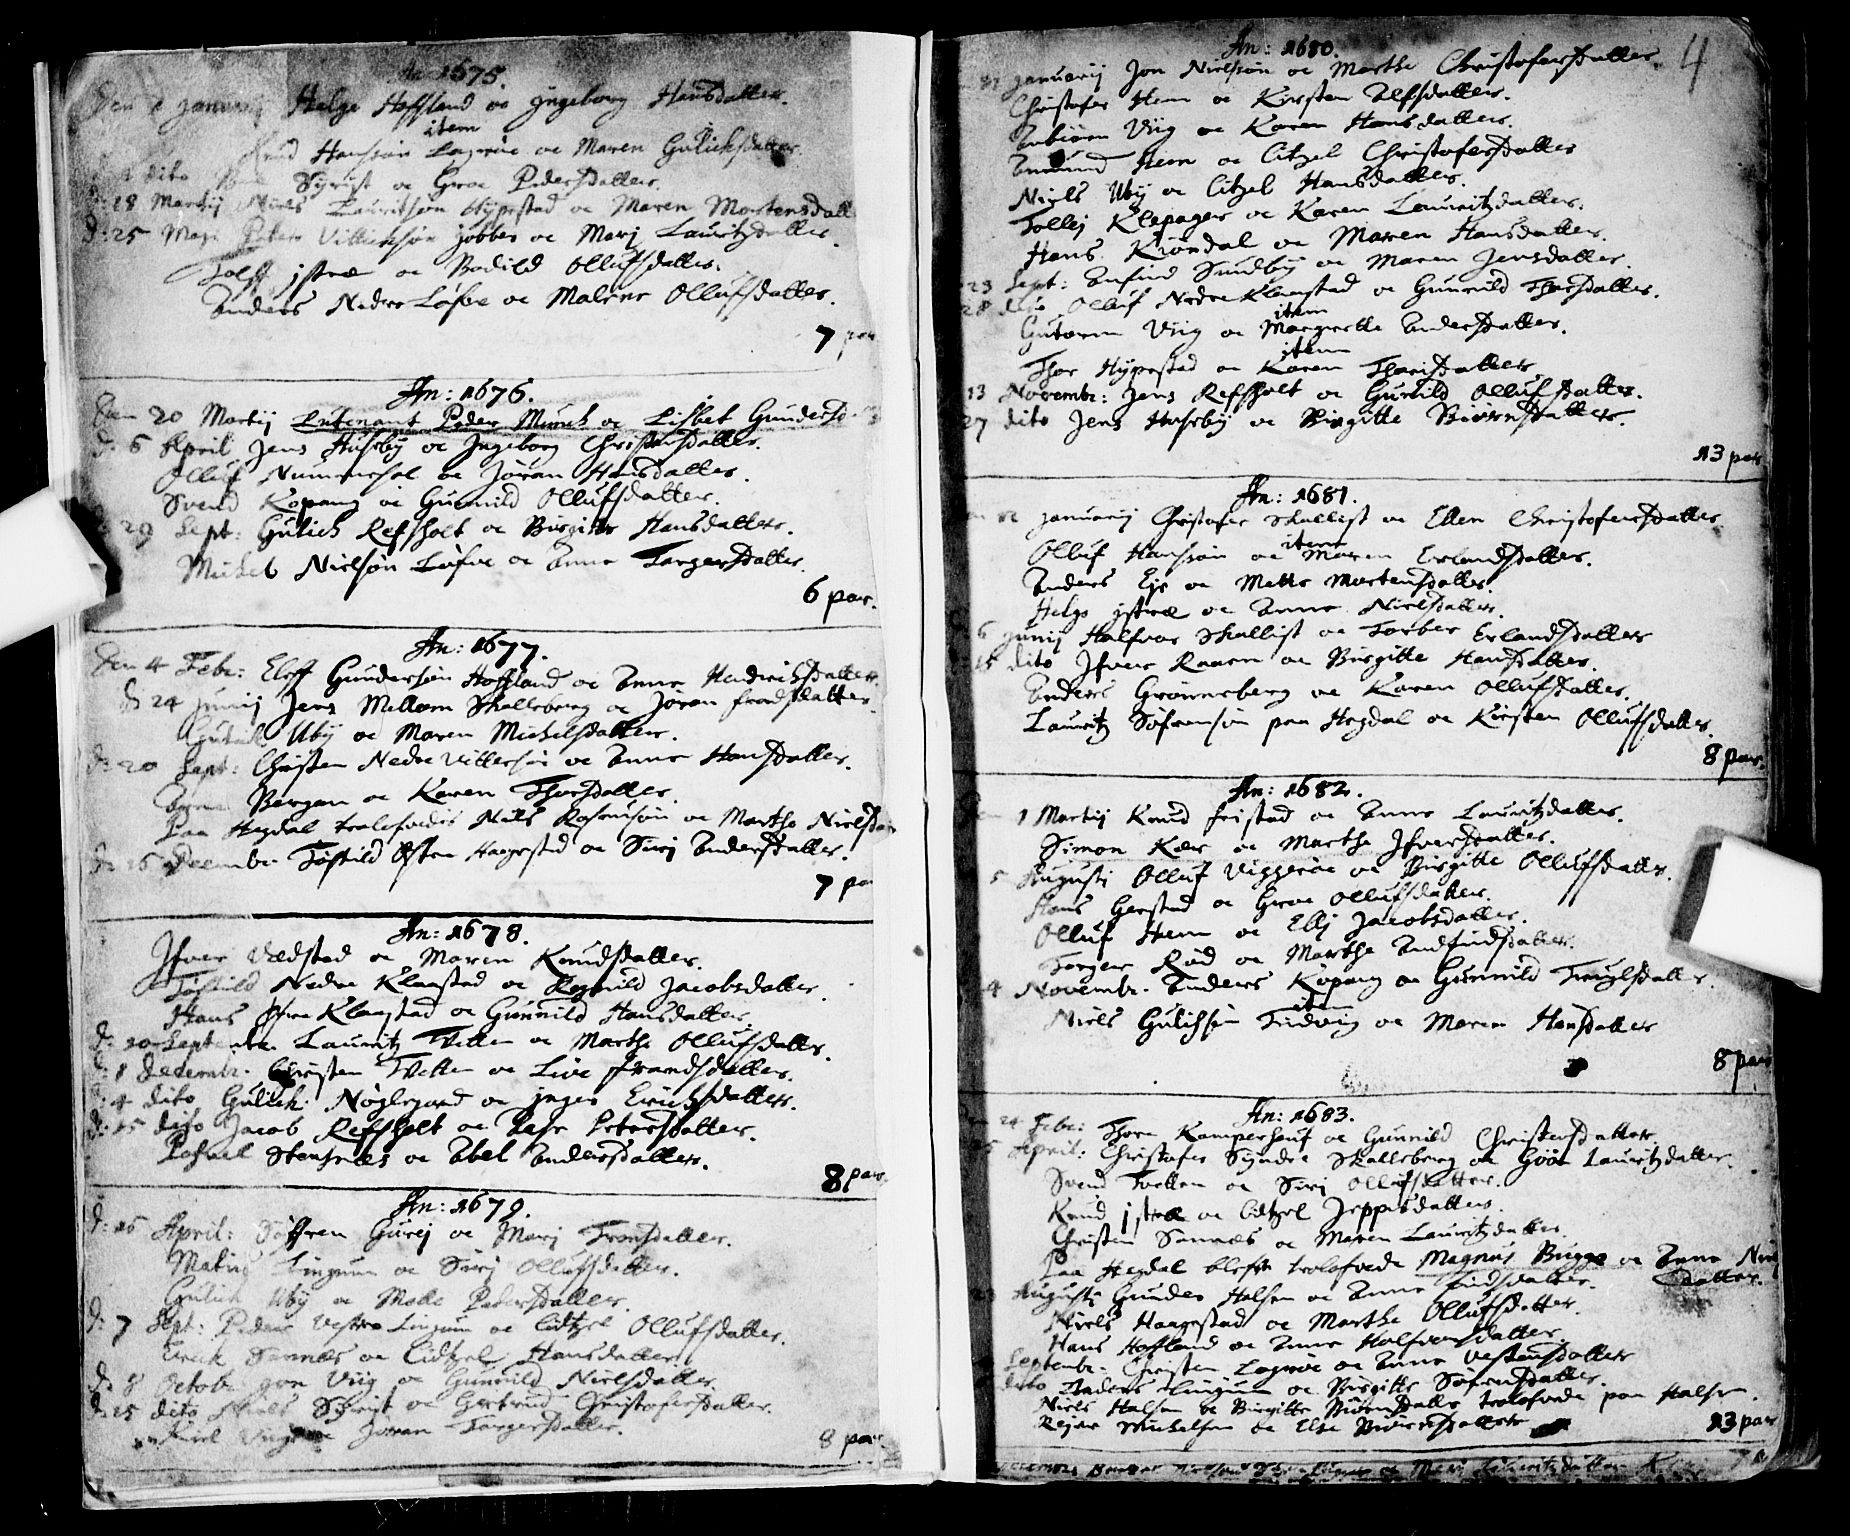 An: 1675.
Den januarij Helge Hoffland oc Jngeborg Hansdatter.
item
Hanssøn Lagerøe oc Maren Gulichsdatter.
dito Syrist oc Groe Pedersdatter.
18 Martij Niels Lauritsøn Hyppestad oc Maren Mortensdatt
d: 25 Maji Peter Villichsøn Jobber oc Marj Lauritzdatter.
Rolff jstræ oc Bodild Ollufsdatter.
Anders Nedre Løfve oc Malene Ollufsdatter.
7 par
An: 1676.
Den 20 Martij Lutenant Peder Munck oc Lisbet Gundersd
d: 6 April Jens Huseby oc Jngeborg Christensdatter.
Olluf Nummedal oc Jøran Hansdatter.
Svend Kopang oc Gunnild Ollufsdatter.
29 Sept: Gulich Refsholt oc Birgitte Hansdatter.
Michel Nielsøn Løfve oc Anne Torgersdatter.
6 par.
An: 1677.
Den 4 Febr: Eloff Gundersøn Hoffland oc Anne Hendrichsdatter.
d 24 junij Jens Mellom Skallsberg oc Jøran frandsdatter.
Gulich Uby oc Maren Michelsdatter.
d: 20 Sept: Christen Nedre Villersøn oc Anne Hansdatter.
Bergan oc Karen Thorsdatter.
Paa Hegdal trolofvedis Niels Rasmusøn oc Marthe Nielsda
Decembr. Tostild Østre Haagestad oc Sirj Andersdatter.
7 pa
An: 1678.
Jfver Vedstad oc Maren Knudsdatter.
Tostild Nedre Klaastad oc Rognild Jacobsdatter.
Hans Øfre Klaastad oc Gunnild Hansdatter.
d: 20 Septembr. Lauritz Tvetten oc Marthe Ollufsdatter.
8 Decembr. Christen Tvetten oc Live frandsdatter.
4 dito Gulich Nøglegaard oc jnger Erichsdatter.
d: 15 dito Jacob Refsholt oc Aase Petersdatter.
Pofvel Stensnæs oc Abel Andersdatter.
8 par
An: 1679.
d: 16 April: Søfren Gurej oc Marj Fransdatter.
Matis Lingum oc Sirj Ollufsdatter.
Gulich Uby oc Mette Pedersdatter.
d: 7 Sept: Peder Vestre Lingum oc Cidtzel Ollufsdatter.
Erick Sannæs oc Cidtzel Hansdatter.
d: 8 Octob: Jon Viig oc Gunnild Nielsdatter.
d: 15 dito Niels Syrist oc Gertrud Christofersdatter.
Jøran Torgersdatter.
8 par
4
An: 1680.
januarij Jon Nielssøn oc Marthe Christofersdatter.
Christofer Hem oc Kirsten Alfsdatter.
Anbiørn Viig oc Karen Hansdatter.
Amund Hem oc Citzel Christofersdatter
Niels Uby oc Citzel Hansdatter.
Tollej Klepager oc Karen Lauritzdatter.
Hans Krøndal oc Maren Hansdatter.
23 Sept: Anfind Sundby oc Maren Jensdatter.
28 dito Olluf Nedre Klaastad oc Gunnild Thorsdatter.
item
Gutorm Viig oc Margrette Andersdatter.
item
Thor Hyppestad oc Karen Thorisdatter
13 Novembr: Jens Refsholt oc Gunild Ollufsdatter.
27 dito Jens Huseby oc Birgitte Biørnsdatter.
13 par
An: 1681.
januarij Christofer Skallist oc Ellen Christofersdatter
item
Olluf Hanssøn oc Maren Erlandsdatter.
Anders Eje oc Mette Mortensdatter.
Helge jstræ oc Anne Nielsdatter.
6 junij Halfvor Skallist oc Torber Erlandsdatter
15 dito Jfver Raaen oc Birgitte Hansdatter.
Anders Grønneberg oc Karen Ollufsdatter.
Lauritz Søfrensøn paa Hegdal oc Kirsten Ollufsdatter.
8 par.
An: 1682.
1 Martij Knud fristad oc Anne Lauritzdatter.
Simon Kær oc Marthe Jfversdatter.
5 Augusti Olluf Viggerøe oc Birgitte Ollufsdatter.
Hans Gerstad oc Groe Ollufsdatter.
Olluf Hem oc Ellj Jacobsdatter.
Torger Rød oc Marthe Andfindsdatter.
4 Novembr. Anders Kopang oc Gunnild Truelsdatter.
item
Niels Gulichsøn Tudvig oc Maren Hansdatter
8 par
An: 1683.
24 Febr: Thore Kamperhauf oc Gunnild Christensdatter.
April: Christofer Syndre Skallsberg oc Goer Lauritzdatter.
Svend Tvetten oc Sirj Ollufsdatter.
Knud jstræ oc Cidtzel Jeppesdatter.
Christen Sannæs oc Maren Lauritzdatter.
Paa Hegdal blefve trolofvede Magnus Bugge oc Anne Niel
datter.
Augusti Gunder Halsen oc Anne Eridsdatter.
Niels Haagestad oc Marthe Ollufsdatter.
Hans Hoffland oc Anne Halfvorsdatter.
Septembr: Christen Lagerøe oc Anne Vestensdatter
dito Anders Lingum oc Birgitte Søfrensdatter.
Niels Halsen oc Birgitte Biørnsdatter trolofvede paa Halsen.
Rejer Michelsen oc Else Biørnsdatter
13 par